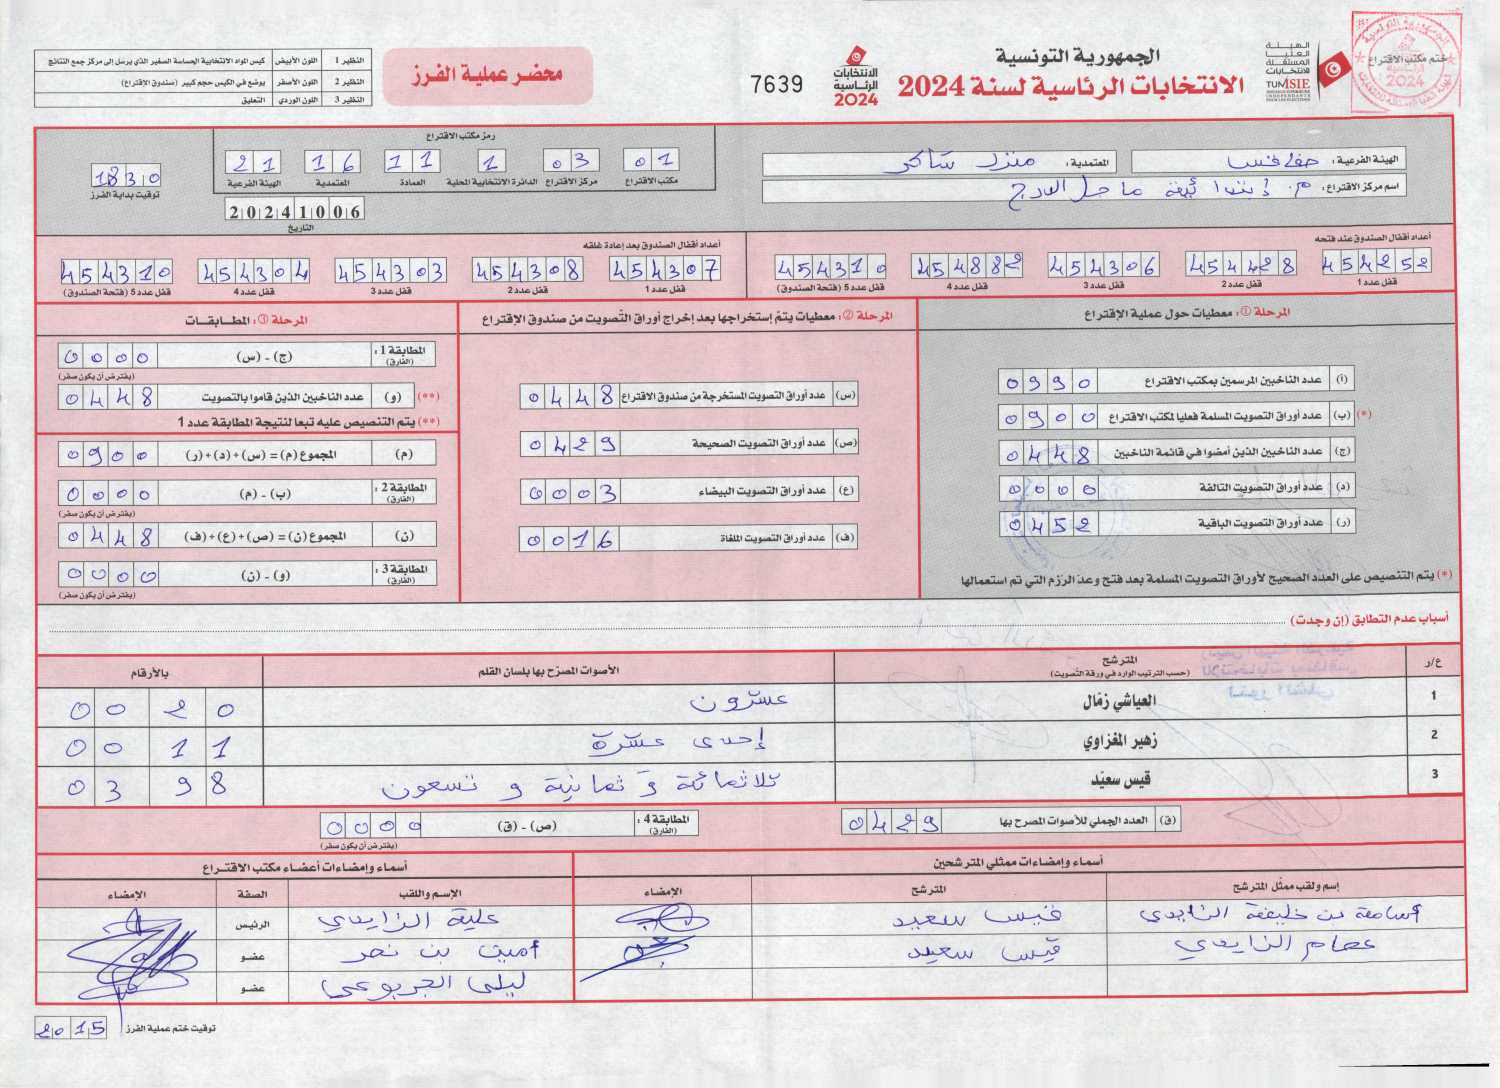 الجمهورية التونسية
الانتخابات الرئاسية لسنة 2024
الهيئة العليا المستقلة للانتخابات
TUNISIE
ختم مكتب الاقتراع
2024
الانتخابات الرئاسية 2024
7639
محضر عملية الفرز
النظير 1 اللون الأبيض كيس المواد الانتخابية الحساسة الصغير الذي يرسل إلى مركز جمع النتائج
النظير 2 اللون الأصفر يوضع في الكيس حجم كبير (صندوق الإقتراع)
النظير 3 اللون الوردي التعليق
الهيئة الفرعية : صفاقس المعتمدية : منزل شاكر
اسم مركز الاقتراع : م. إبتدائية ماجل الدرج
رمز مكتب الاقتراع
01 03 1 11 16 21
مكتب الاقتراع مركز الاقتراع الدائرة الانتخابية المحلية العمادة المعتمدية الهيئة الفرعية
20241006
التاريخ
1830
توقيت بداية الفرز
أعداد أقفال الصندوق عند فتحه
454252 454428 454306 454882 454310
قفل عدد 1 قفل عدد 2 قفل عدد 3 قفل عدد 4 قفل عدد 5 (فتحة الصندوق)
أعداد أقفال الصندوق بعد إعادة غلقه
454307 454308 454303 454304 454310
قفل عدد 1 قفل عدد 2 قفل عدد 3 قفل عدد 4 قفل عدد 5 (فتحة الصندوق)
المرحلة ①: معطيات حول عملية الإقتراع
(أ) عدد الناخبين المرسمين بمكتب الاقتراع 0990
(*) (ب) عدد أوراق التصويت المسلمة فعليا لمكتب الاقتراع 0900
(ج) عدد الناخبين الذين أمضوا في قائمة الناخبين 0448
(د) عدد أوراق التصويت التالفة 0000
(ر) عدد أوراق التصويت الباقية 0452
(*) يتم التنصيص على العدد الصحيح لأوراق التصويت المسلمة بعد فتح وعد الرزم التي تم استعمالها
المرحلة ②: معطيات يتم إستخراجها بعد إخراج أوراق التصويت من صندوق الإقتراع
(س) عدد أوراق التصويت المستخرجة من صندوق الاقتراع 0448
(ص) عدد أوراق التصويت الصحيحة 0429
(ع) عدد أوراق التصويت البيضاء 0003
(ف) عدد أوراق التصويت الملغاة 0016
المرحلة ③: المطابقات
المطابقة 1 : (الفارق) (ج) - (س) 0000
(يفترض أن يكون صفر)
(**) (و) عدد الناخبين الذين قاموا بالتصويت 0448
(**) يتم التنصيص عليه تبعا لنتيجة المطابقة عدد 1
(م) المجموع (م) = (س) + (د) + (ر) 0900
المطابقة 2 : (الفارق) (ب) - (م) 0000
(يفترض أن يكون صفر)
(ن) المجموع (ن) = (ص) + (ع) + (ف) 0448
المطابقة 3 : (الفارق) (و) - (ن) 0000
(يفترض أن يكون صفر)
أسباب عدم التطابق (إن وجدت)
ع/ر المترشح (حسب الترتيب الوارد في ورقة التصويت) الأصوات المصرح بها بلسان القلم بالأرقام
1 العياشي زمّال عشرون 0020
2 زهير المغزاوي إحدى عشرة 0011
3 قيس سعيّد ثلاثمائة و ثمانية و تسعون 0398
(ق) العدد الجملي للأصوات المصرح بها 0429
المطابقة 4 : (الفارق) (ص) - (ق) 0000
(يفترض أن يكون صفر)
أسماء وإمضاءات ممثلي المترشحين
إسم ولقب ممثّل المترشح المترشح الإمضاء
أسامة بن خليفة الزايدي قيس سعيد
عصام الزايدي قيس سعيد
أسماء وإمضاءات أعضاء مكتب الاقتراع
الإسم واللقب الصفة الإمضاء
علية الزايدي الرئيس
أمين بن نصر عضو
ليلى الجربوعي عضو
توقيت ختم عملية الفرز 2015